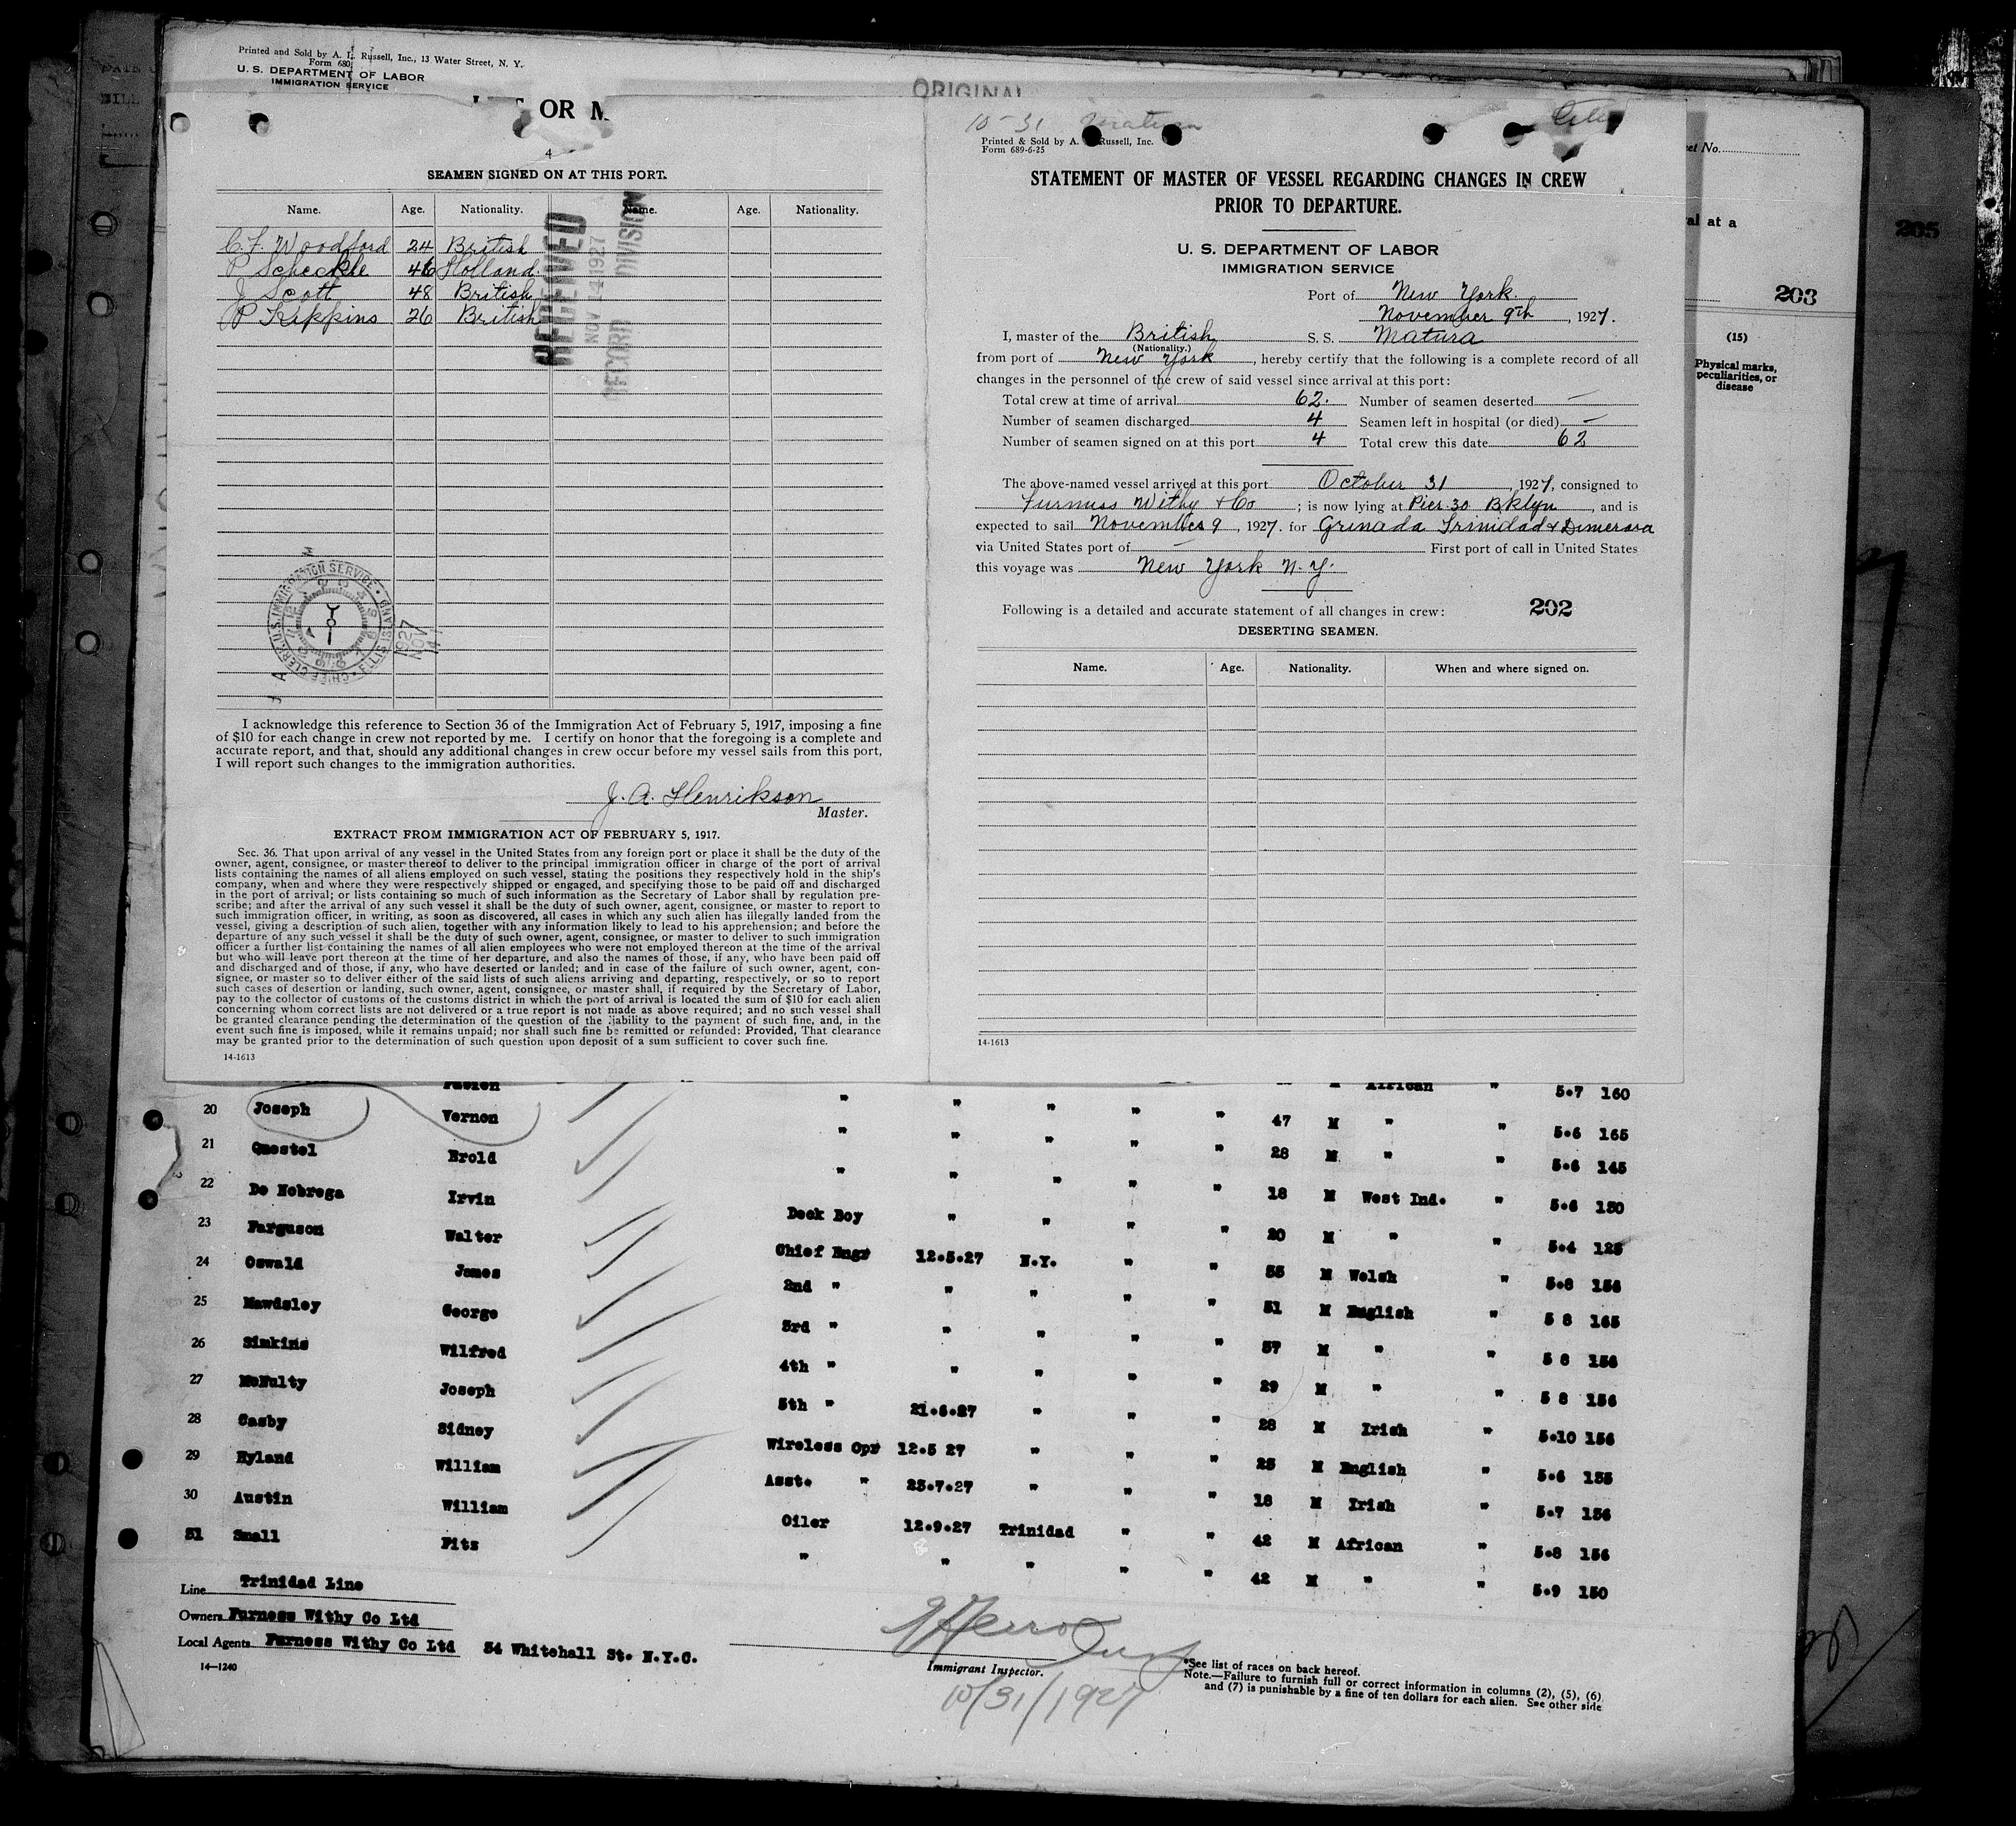 Printed and Sold by A. L. Russell, Inc., 13 Water Street, N. Y.
Form 680
U. S. DEPARTMENT OF LABOR
IMMIGRATION SERVICE
ORIGINAL
OR
4
SEAMEN SIGNED ON AT THIS PORT.
Name. Age. Nationality. Name. Age. Nationality.
C. F. Woodford 24 British
P Scheckle 46 Holland.
J Scott 48 British
P Kippins 26 British
RECEIVED
NOV 14 1927
RECORD DIVISION
CHIEF CLERK U.S. IMMIGRATION SERVICE · ELLIS ISLAND
1927
NOV
14
I acknowledge this reference to Section 36 of the Immigration Act of February 5, 1917, imposing a fine
of $10 for each change in crew not reported by me. I certify on honor that the foregoing is a complete and
accurate report, and that, should any additional changes in crew occur before my vessel sails from this port,
I will report such changes to the immigration authorities.
J. A. Henrikson
Master.
EXTRACT FROM IMMIGRATION ACT OF FEBRUARY 5, 1917.
Sec. 36. That upon arrival of any vessel in the United States from any foreign port or place it shall be the duty of the
owner, agent, consignee, or master thereof to deliver to the principal immigration officer in charge of the port of arrival
lists containing the names of all aliens employed on such vessel, stating the positions they respectively hold in the ship's
company, when and where they were respectively shipped or engaged, and specifying those to be paid off and discharged
in the port of arrival; or lists containing so much of such information as the Secretary of Labor shall by regulation pre-
scribe; and after the arrival of any such vessel it shall be the duty of such owner, agent, consignee, or master to report to
such immigration officer, in writing, as soon as discovered, all cases in which any such alien has illegally landed from the
vessel, giving a description of such alien, together with any information likely to lead to his apprehension; and before the
departure of any such vessel it shall be the duty of such owner, agent, consignee, or master to deliver to such immigration
officer a further list containing the names of all alien employees who were not employed thereon at the time of the arrival
but who will leave port thereon at the time of her departure, and also the names of those, if any, who have been paid off
and discharged and of those, if any, who have deserted or landed; and in case of the failure of such owner, agent, con-
signee, or master so to deliver either of the said lists of such aliens arriving and departing, respectively, or so to report
such cases of desertion or landing, such owner, agent, consignee, or master shall, if required by the Secretary of Labor,
pay to the collector of customs of the customs district in which the port of arrival is located the sum of $10 for each alien
concerning whom correct lists are not delivered or a true report is not made as above required; and no such vessel shall
be granted clearance pending the determination of the question of the liability to the payment of such fine, and, in the
event such fine is imposed, while it remains unpaid; nor shall such fine be remitted or refunded: Provided, That clearance
may be granted prior to the determination of such question upon deposit of a sum sufficient to cover such fine.
14-1613
10-31 Matura
Printed & Sold by A. Russell, Inc.
Form 689-6-25
STATEMENT OF MASTER OF VESSEL REGARDING CHANGES IN CREW
PRIOR TO DEPARTURE.
U. S. DEPARTMENT OF LABOR
IMMIGRATION SERVICE
Port of New York.
November 9th, 1927.
I, master of the British S. S. Matura
(Nationality.)
from port of New York, hereby certify that the following is a complete record of all
changes in the personnel of the crew of said vessel since arrival at this port:
Total crew at time of arrival 62. Number of seamen deserted —
Number of seamen discharged 4 Seamen left in hospital (or died) —
Number of seamen signed on at this port 4 Total crew this date 62
The above-named vessel arrived at this port October 31, 1927, consigned to
Furness Withy & Co; is now lying at Pier 30 Bklyn, and is
expected to sail November 9, 1927. for Grenada Trinidad & Demerara
via United States port of — First port of call in United States
this voyage was New York N. Y.
Following is a detailed and accurate statement of all changes in crew: 202
DESERTING SEAMEN.
Name. Age. Nationality. When and where signed on.
14-1613
et No.
al at a
203
205
(15)
Physical marks,
peculiarities, or
disease
African " 5.7 160
20 Joseph Vernon " " " " " 47 M " " 5.6 165
21 Questel Erold " " " " " 28 M " " 5.6 145
22 De Nobrega Irvin " " " " " 18 M West Ind. " 5.6 130
23 Farguson Walter Deck Boy " " " " 20 M " " 5.4 125
24 Oswald James Chief Engr 12.5.27 N.Y. " " 55 M Welsh " 5.8 156
25 Mawdsley George 2nd " " " " " 51 M English " 5 8 165
26 Simkins Wilfred 3rd " " " " " 37 M " " 5 8 156
27 McNulty Joseph 4th " " " " " 29 M " " 5 8 156
28 Casby Sidney 5th " 21.6.27 " " " 28 M Irish " 5.10 156
29 Hyland William Wireless Opr 12.5 27 " " " 23 M English " 5.6 135
30 Austin William Asst. " 23.7.27 " " " 18 M Irish " 5.7 136
31 Small Fitz Oiler 12.9.27 Trinidad " " 42 M African " 5.8 156
" " " " " 42 M " " 5.9 150
Line Trinidad Line
Owners Furness Withy Co Ltd
Local Agents Furness Withy Co Ltd 34 Whitehall St. N.Y.C.
14—1240
Immigrant Inspector.
10/31/1927
*See list of races on back hereof.
Note.—Failure to furnish full or correct information in columns (2), (5), (6)
and (7) is punishable by a fine of ten dollars for each alien. See other side